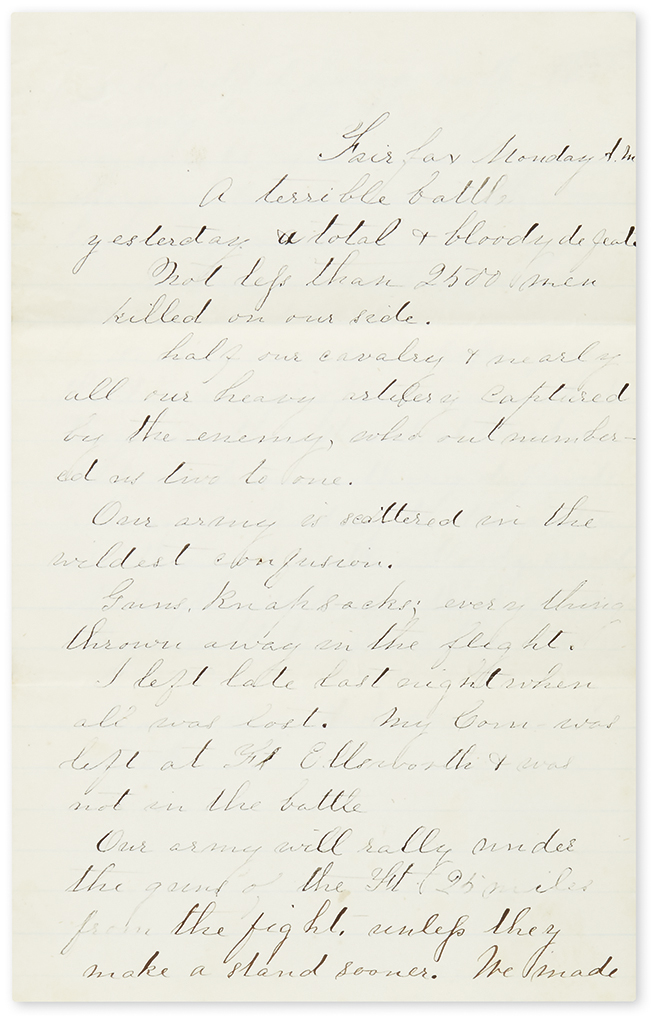 Fairfax Monday A.M
A terrible battle
yesterday, a total & bloody defeat.
Not less than 2500 men
killed on our side.
half our cavalry & nearly
all our heavy artilery captured
by the enemy, who out number-
ed us two to one.
Our army is scattered in the
wildest confusion.
Guns, Knaksacks; every thing
thrown away in the flight.
I left late last night when
all was lost. My Com was
left at Ft Ellsworth & was
not in the battle
Our army will rally under
the guns of the Ft (25 miles
from the fight, unless they
make a stand sooner. We made